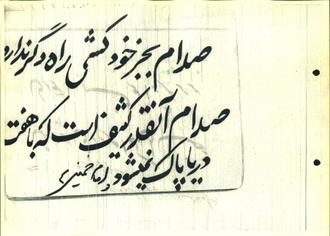 صدام بجز خودکشی راه دگر ندارد
صدام آنقدر کثیف است که با هفت
دریا پاک نمیشود «امام خمینی»